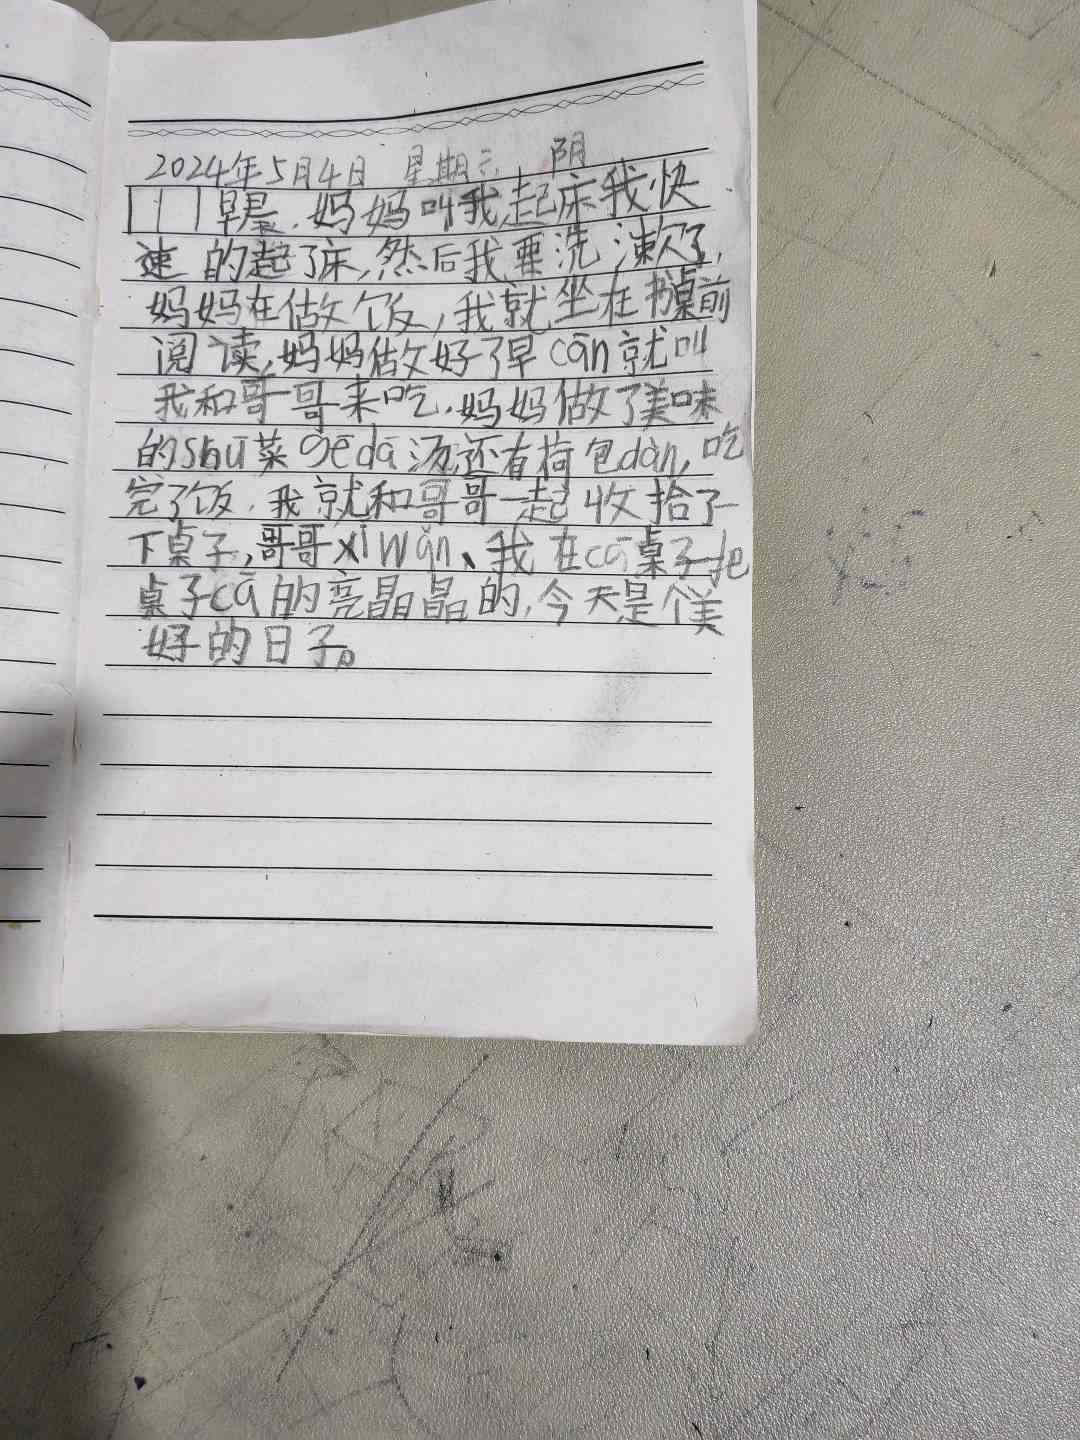 2024年5月4日 星期六 阴
早晨,妈妈叫我起床我快
速的起了床,然后我要洗漱了,
妈妈在做饭,我就坐在书桌前
阅读,妈妈做好了早cān就叫
我和哥哥来吃.妈妈做了美味
的shū菜gēdā汤还有荷包dàn,吃
完了饭,我就和哥哥一起收拾了一
下桌子,哥哥xǐwǎn、我在cā桌子把
桌子cā的亮晶晶的,今天是个美
好的日子。